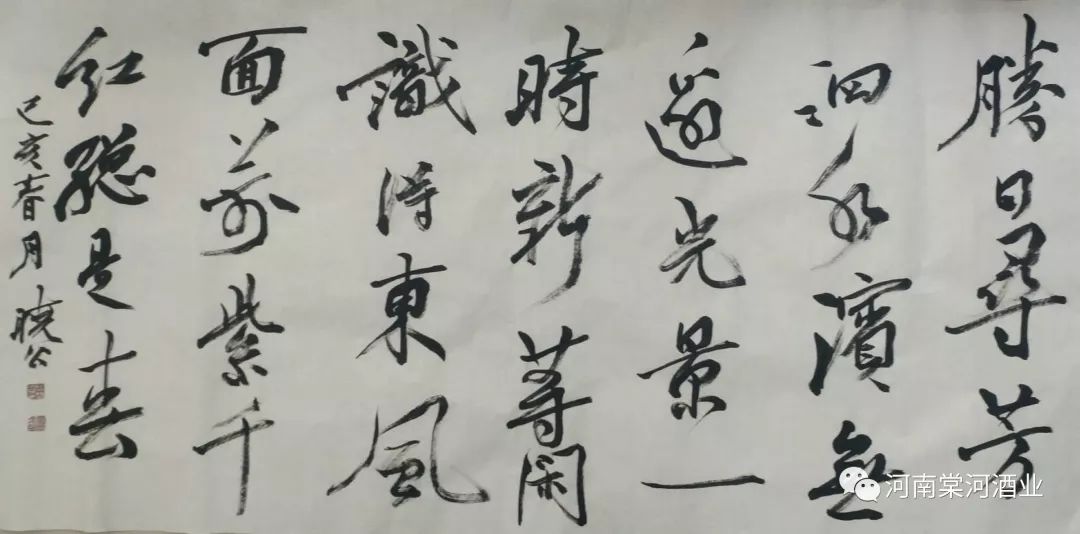 勝日尋芳
泗水濱無
邊光景一
時新等閑
識得東風
面萬紫千
紅總是春
己亥春月 曉公
河南棠河酒业